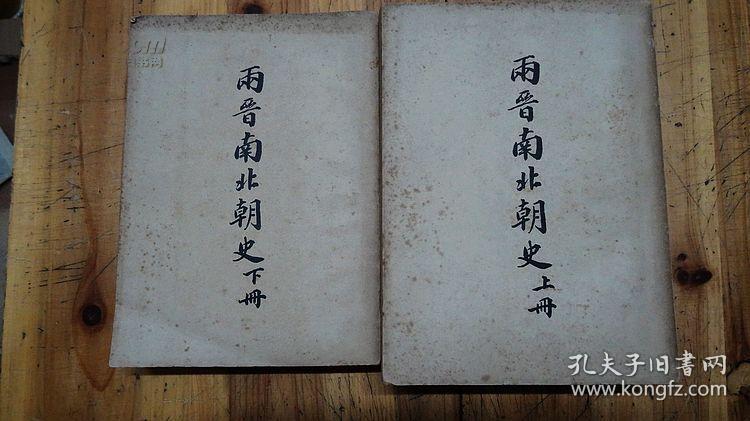 兩晉南北朝史下冊
兩晉南北朝史上冊
孔夫子旧书网
www.kongfz.com